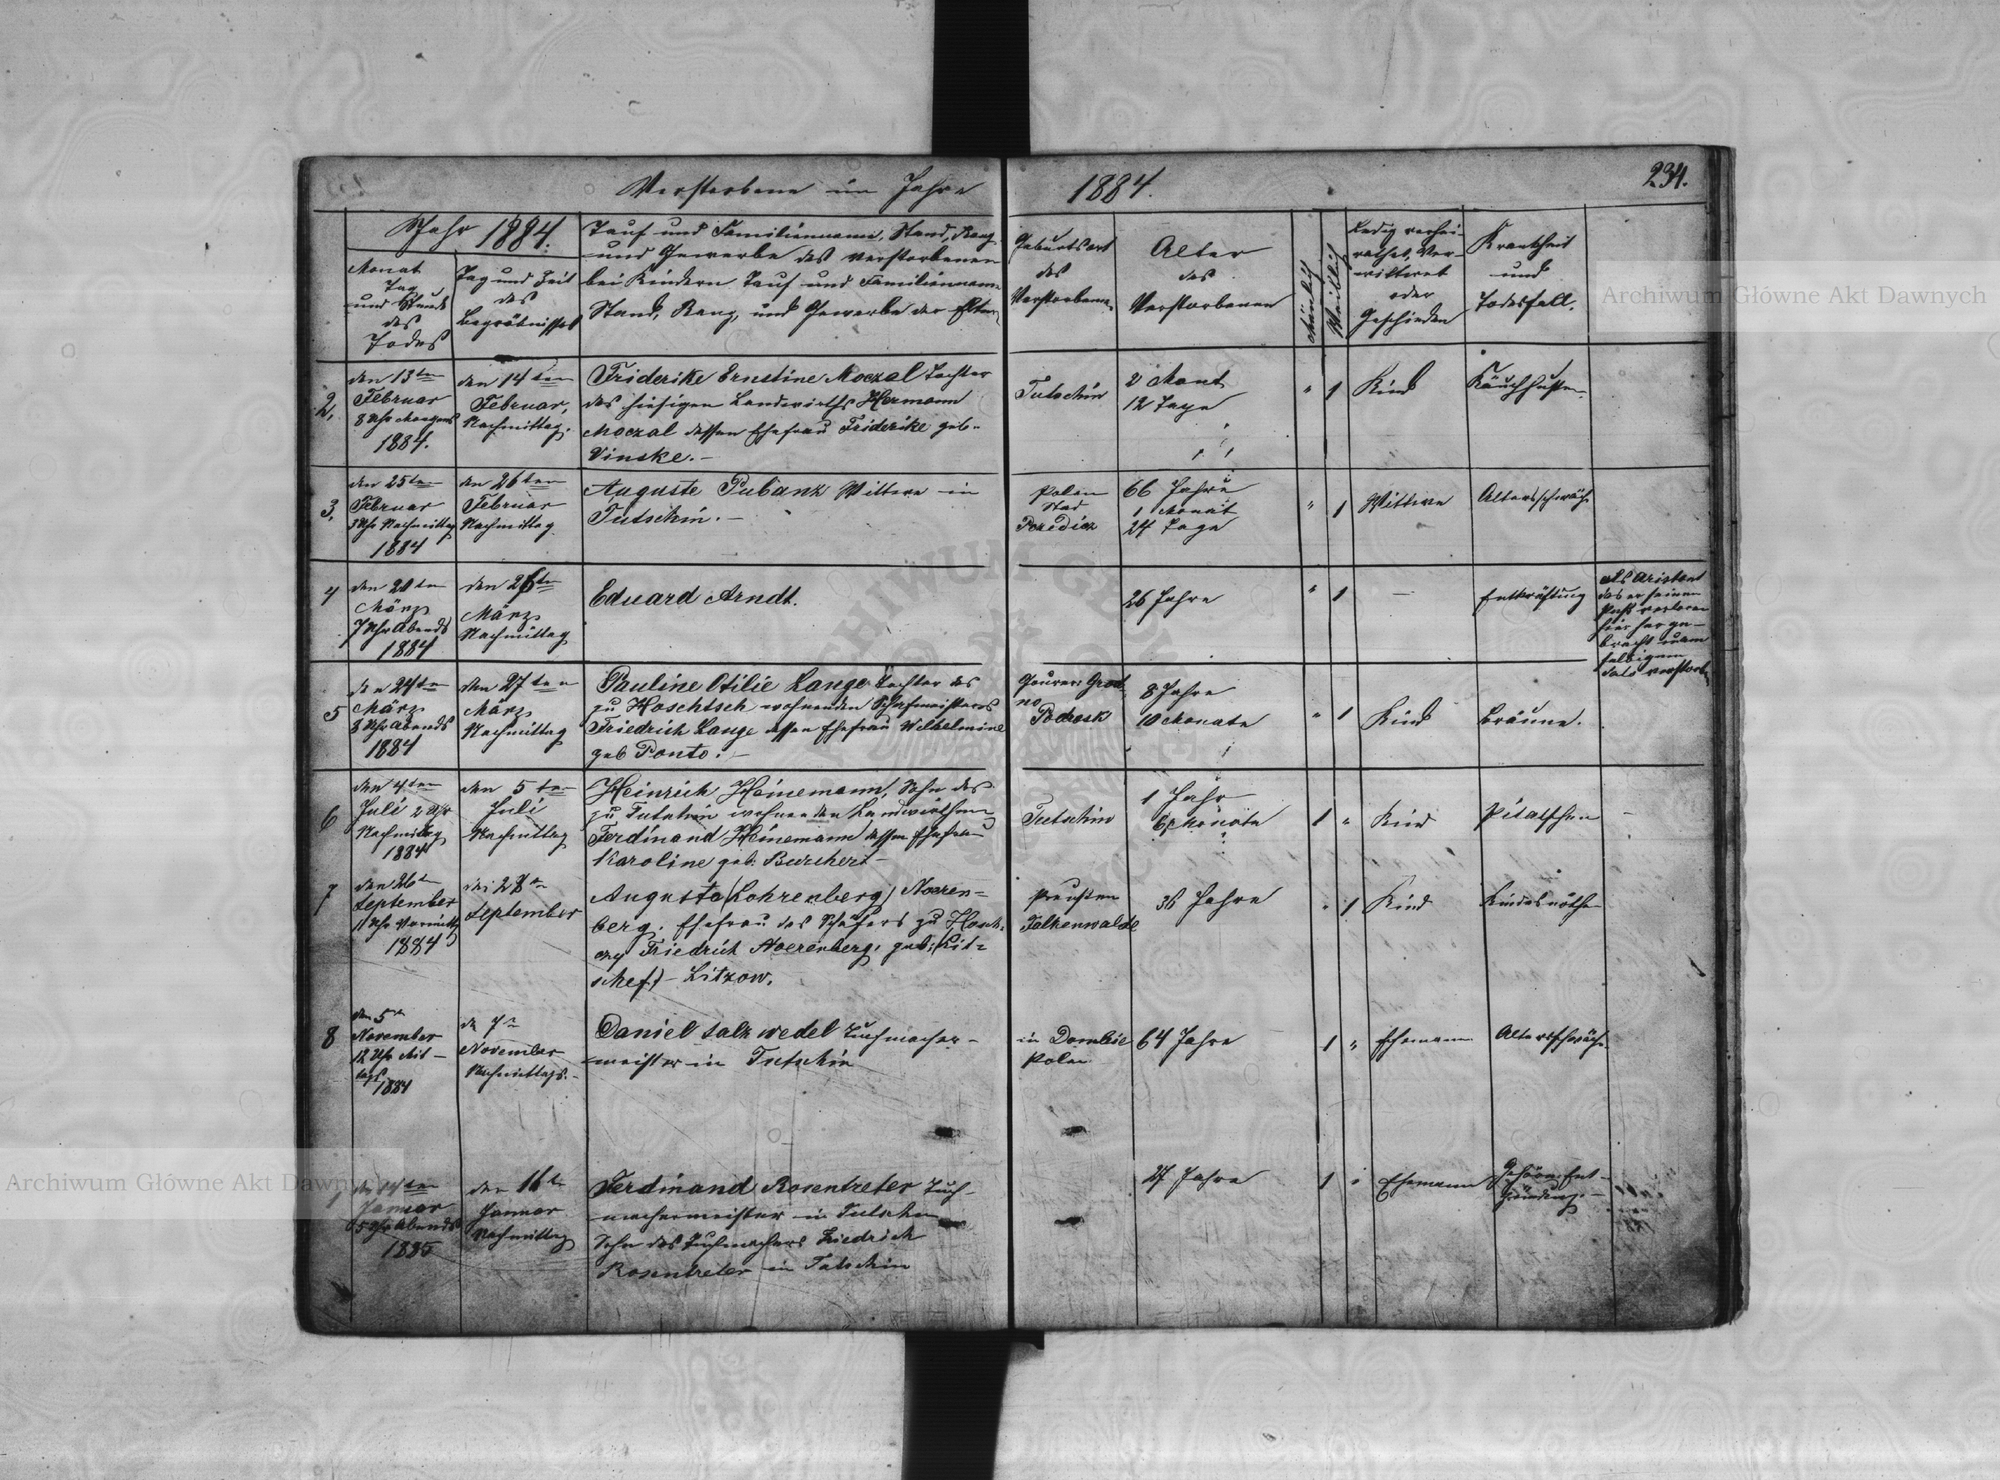 Verstorbene im Jahre 1884.
234.
Jahr 1884.
Monat
Tag
und Stunde
des
Todes
Tag und Zeit
des
Begräbnisses
Tauf und Familienname, Stand, Rang
und Gewerbe des verstorbenen
bei Kindern Tauf und Familienname
Stand, Rang, und Gewerbe der Eltern
Geburtsort
des
Verstorbenen
Alter
des
Verstorbenen
Männlich
Weiblich
Ledig verhei-
rathet, Ver-
wittwet
oder
Geschieden
Krankheit
und
Todesfall.
2.
den 13ten
Februar
8 Uhr Morgens
1884.
den 14ten
Februar,
Nachmittag.
Friderike Ernstine Moczal Tochter
des hiesigen Landwirths Hermann
Moczal dessen Ehefrau Friderike geb.
Vinske.-
Tutschin
2 Monat
12 Tage
" 1
Kind
Keuchhusten
3.
den 25ten
Februar
3 Uhr Nachmittag
1884
den 26ten
Februar
Nachmittag
Auguste Pubanz Wittwe in
Tutschin.-
Polen
Stad
66 Jahre
1 Monat
24 Tage
" 1
Wittwe
Altersschwäche
4
März
7 Uhr Abends
1884
den 26ten
März
Nachmittag
Eduard Arndt.
26 Jahre
" 1
—
Entkräftung
als Aristant
das er seinen
Paß verloren
hier her ge-
bracht
verstorb.
5
den 24ten
März
8 Uhr Abends
1884
den 27ten
März
Nachmittag
Pauline Otilie Lange Tochter des
zu Hoschtsch wohnenden Schafmeisters
Friedrich Lange dessen Ehefrau Wilhelmine
geb Ponto.-
Gouver: Grod-
no
Podrosk
8 Jahre
10 Monate
" 1
Kind
Bräune.
6
den 4ten
Juli 2 Uhr
Nachmittag
1884
den 5ten
Juli
Nachmittag
Heinrich Heinemann, Sohn des
zu Tutschin wohnenden Landwirthen
Ferdinand Heinemann dessen Ehefrau
Karoline geb. Burchert -
Tutschin
1 Jahr
6 Monate
1 "
Kind
7
den 26ten
September
1884
den 28ten
September
Augusta (Lohrenberg) Noeren=
berg. Ehefrau des Schäfers zu Hosch-
czy Friedrich Noerenberg, geb: (Lit=
schef) - Litzow.
Preußen
Falkenwalde
36 Jahre
" 1
Kind
Kindesnöthe
8
den 5n
November
12 Uhr Mit-
tags
1884
den 7n
November
Nachmittags.-
Daniel Salzwedel Tuchmacher-
meister in Tutschin
in Dombie
Polen
64 Jahre
1 "
Ehemann
Altersschwäche
den 14ten
Januar
5 Uhr Abends
1885
den 16te
Januar
Nachmittag
Ferdinand Rosentreter Tuch-
machermeister in Tutschin
Sohn des Tuchmachers Friedrich
Rosentreter in Tutschin
27 Jahre
1 "
Ehemann
Gehirn Ent-
zündung.-
Archiwum Główne Akt Dawnych
Archiwum Główne Akt Dawnych